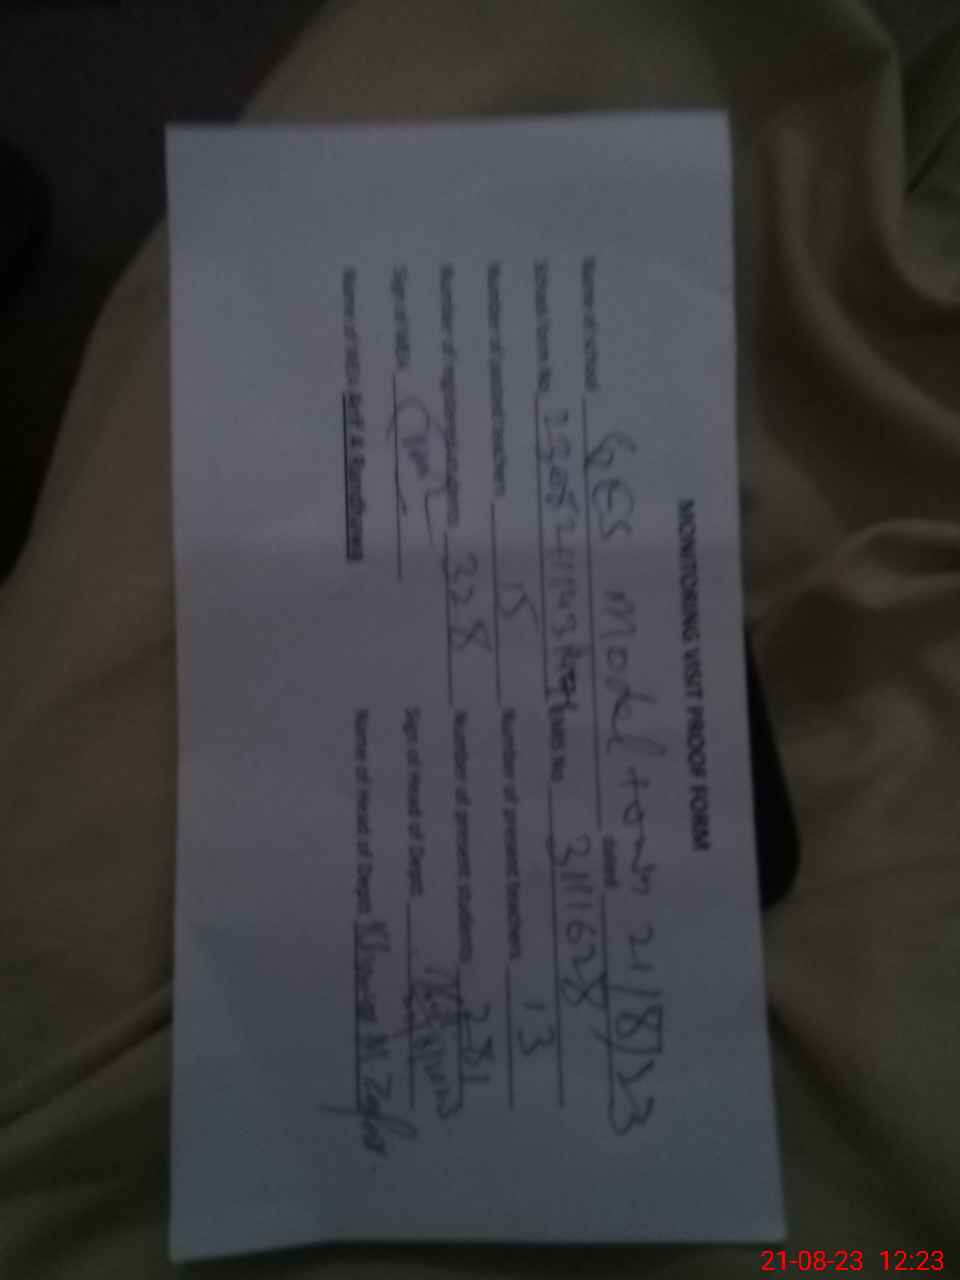 MONITORING VISIT PROOF FORM
Name of school GES Model town dated 21/8/23
School Form No. EMIS No. 31111628
Number of posted teachers 15 Number of present teachers 13
Number of registered students 328 Number of present students 281
Sign of MEA Sign of Head of Deptt:
Name of MEA Arif A Randhawa Name of Head of Deptt:
21-08-23 12:23